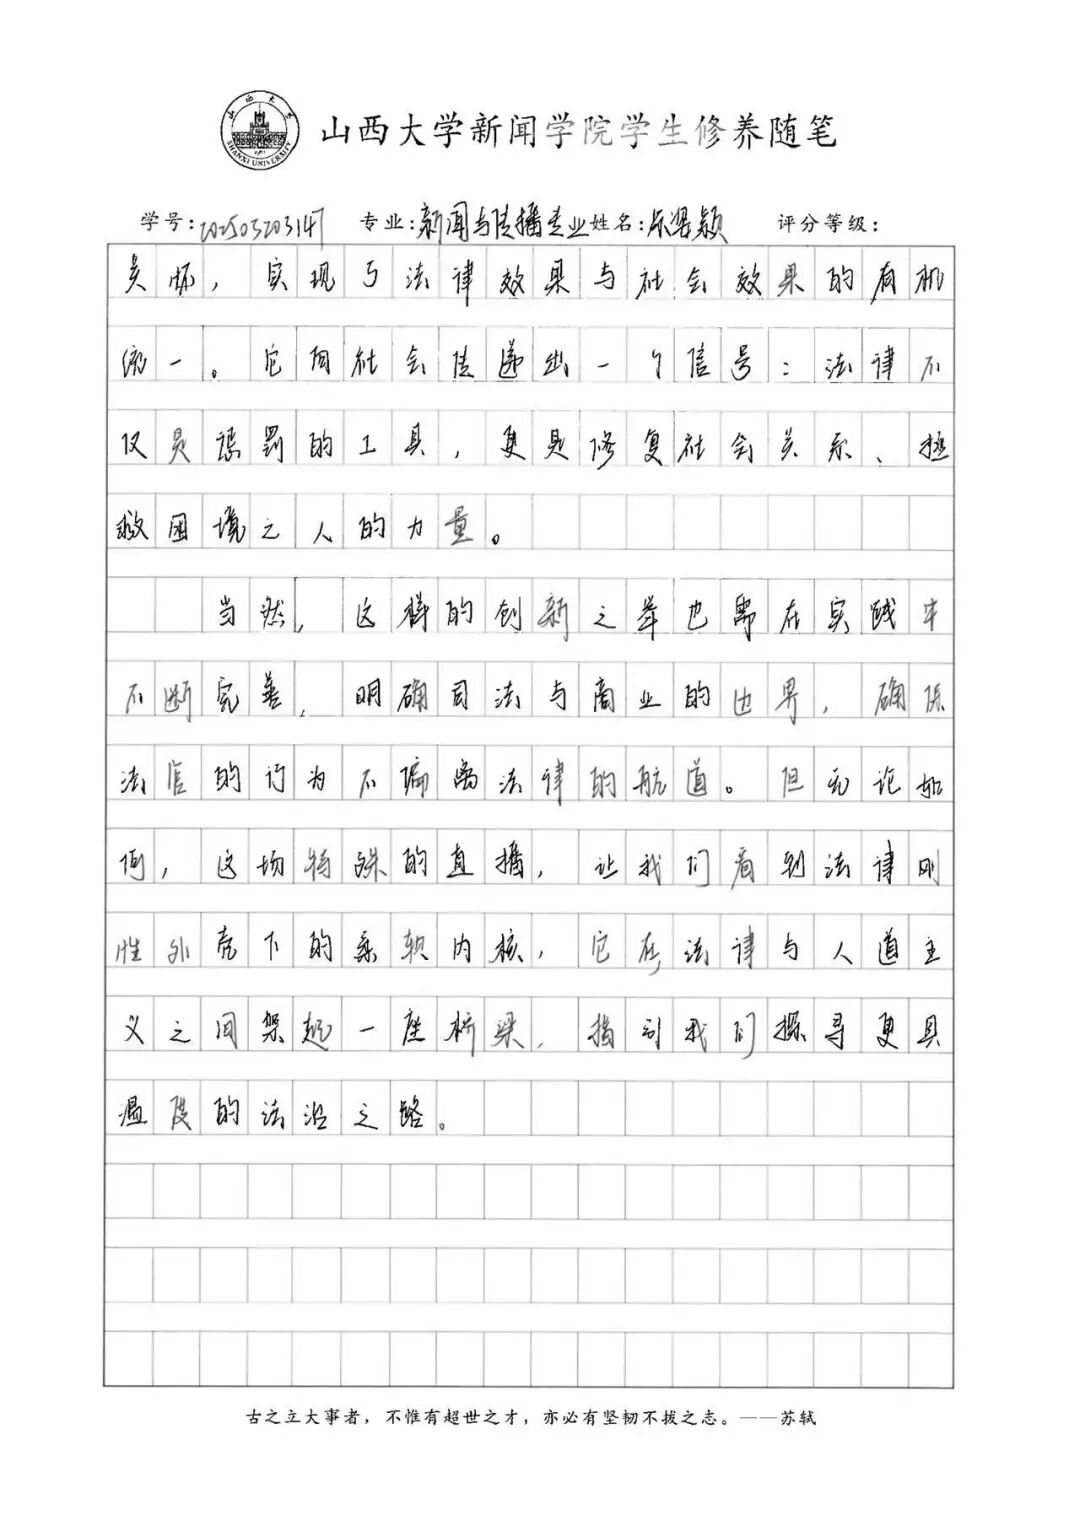 山西大学新闻学院学生修养随笔
SHANXI UNIVERSITY
学号:202503203147 专业:新闻与传播专业 姓名: 评分等级:
关怀,实现了法律效果与社会效果的有机
统一。它向社会传递出一个信号:法律不
仅是惩罚的工具,更是修复社会关系、拯
救困境之人的力量。
当然,这样的创新之举也需在实践中
不断完善,明确司法与商业的边界,确保
法官的行为不偏离法律的航道。但无论如
何,这场特殊的直播,让我们看到法律刚
性外壳下的柔软内核,它在法律与人道主
义之间架起一座桥梁,指引我们探寻更具
温度的法治之路。
古之立大事者,不惟有超世之才,亦必有坚韧不拔之志。——苏轼